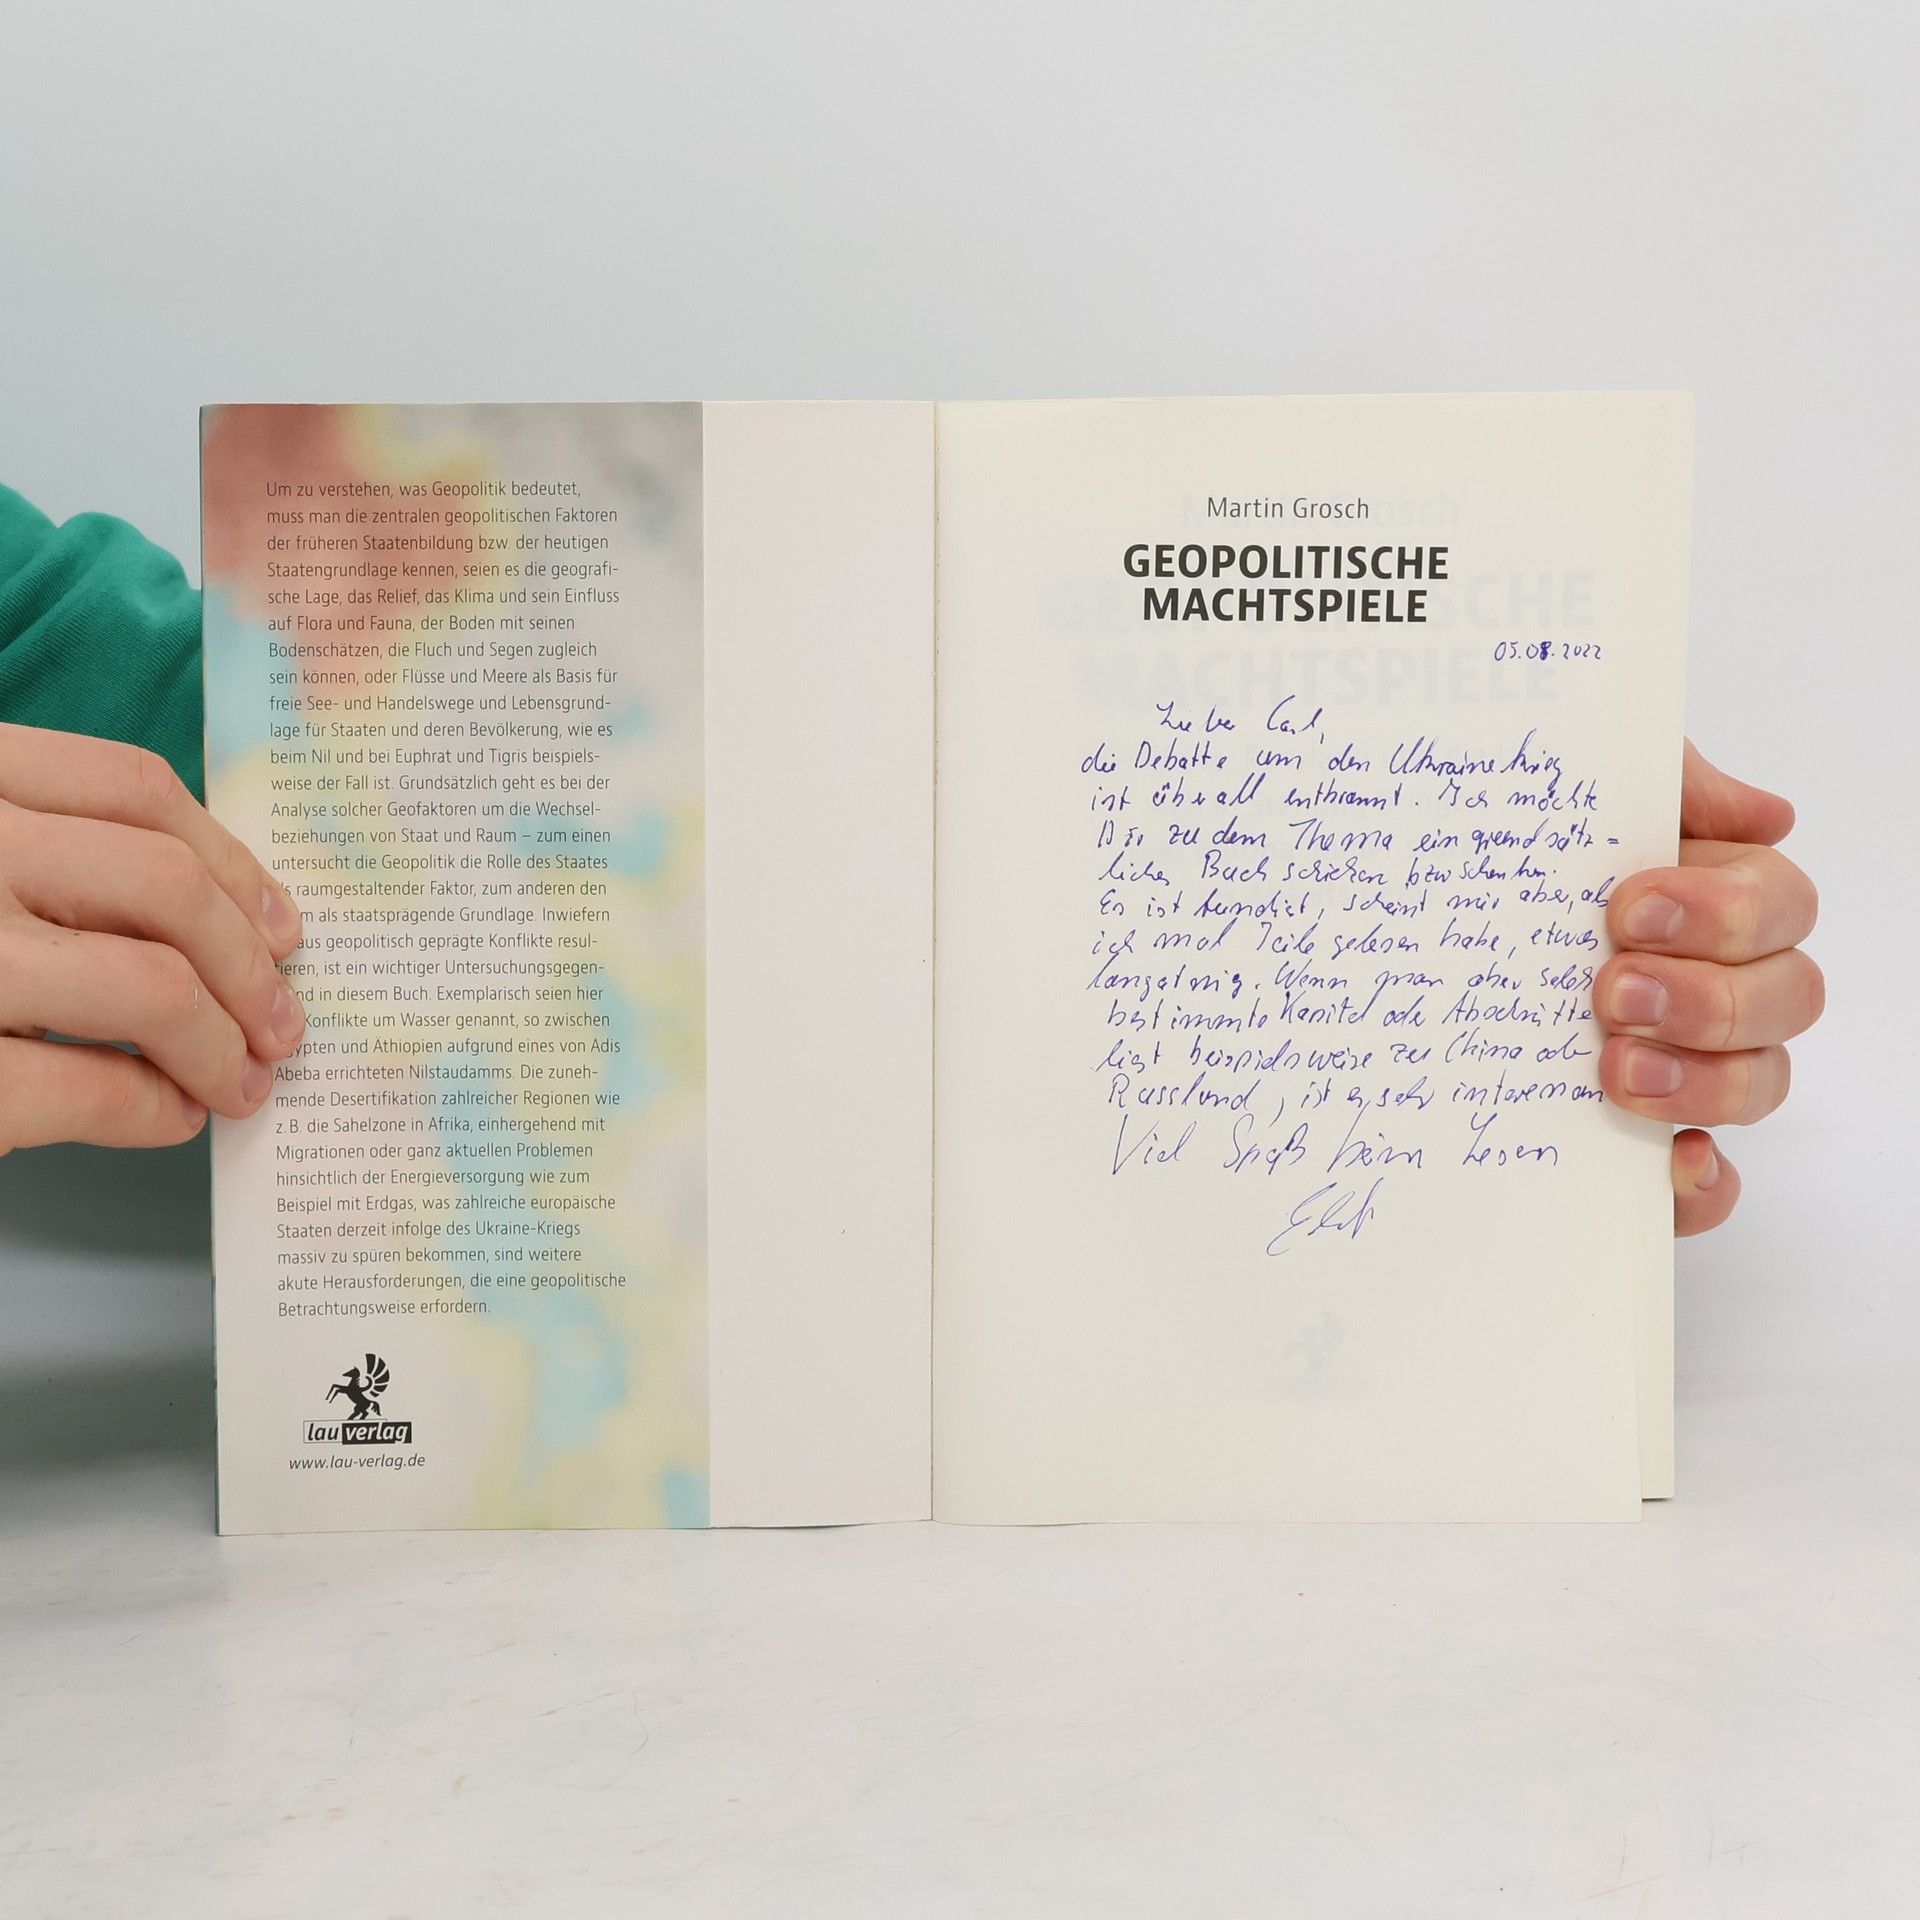 Um zu verstehen, was Geopolitik bedeutet,
muss man die zentralen geopolitischen Faktoren
der früheren Staatenbildung bzw. der heutigen
Staatengrundlage kennen, seien es die geografi-
sche Lage, das Relief, das Klima und sein Einfluss
auf Flora und Fauna, der Boden mit seinen
Bodenschätzen, die Fluch und Segen zugleich
sein können, oder Flüsse und Meere als Basis für
freie See- und Handelswege und Lebensgrund-
lage für Staaten und deren Bevölkerung, wie es
beim Nil und bei Euphrat und Tigris beispiels-
weise der Fall ist. Grundsätzlich geht es bei der
Analyse solcher Geofaktoren um die Wechsel-
beziehungen von Staat und Raum – zum einen
untersucht die Geopolitik die Rolle des Staates
raumgestaltender Faktor, zum anderen den
als staatsprägende Grundlage. Inwiefern
aus geopolitisch geprägte Konflikte resul-
tieren, ist ein wichtiger Untersuchungsgegen-
in diesem Buch. Exemplarisch seien hier
Konflikte um Wasser genannt, so zwischen
und Äthiopien aufgrund eines von Adis
Abeba errichteten Nilstaudamms. Die zuneh-
mende Desertifikation zahlreicher Regionen wie
z. B. die Sahelzone in Afrika, einhergehend mit
Migrationen oder ganz aktuellen Problemen
hinsichtlich der Energieversorgung wie zum
Beispiel mit Erdgas, was zahlreiche europäische
Staaten derzeit infolge des Ukraine-Kriegs
massiv zu spüren bekommen, sind weitere
akute Herausforderungen, die eine geopolitische
Betrachtungsweise erfordern.
lau verlag
www.lau-verlag.de
Martin Grosch
GEOPOLITISCHE
MACHTSPIELE
05.08.2022
Lieber Carl,
die Debatte um den Ukrainekrieg
ist überall entbrannt. Ich möchte
Dir zu dem Thema ein grundsätz=
liches Buch schicken bzw schenken.
Es ist fundiert, scheint mir aber, als
ich mal Teile gelesen habe, etwas
langatmig. Wenn man aber
bestimmte Kapitel oder Abschnitte
liest beispielsweise zu China oder
Russland, ist es sehr interessan
Viel Spaß beim Lesen